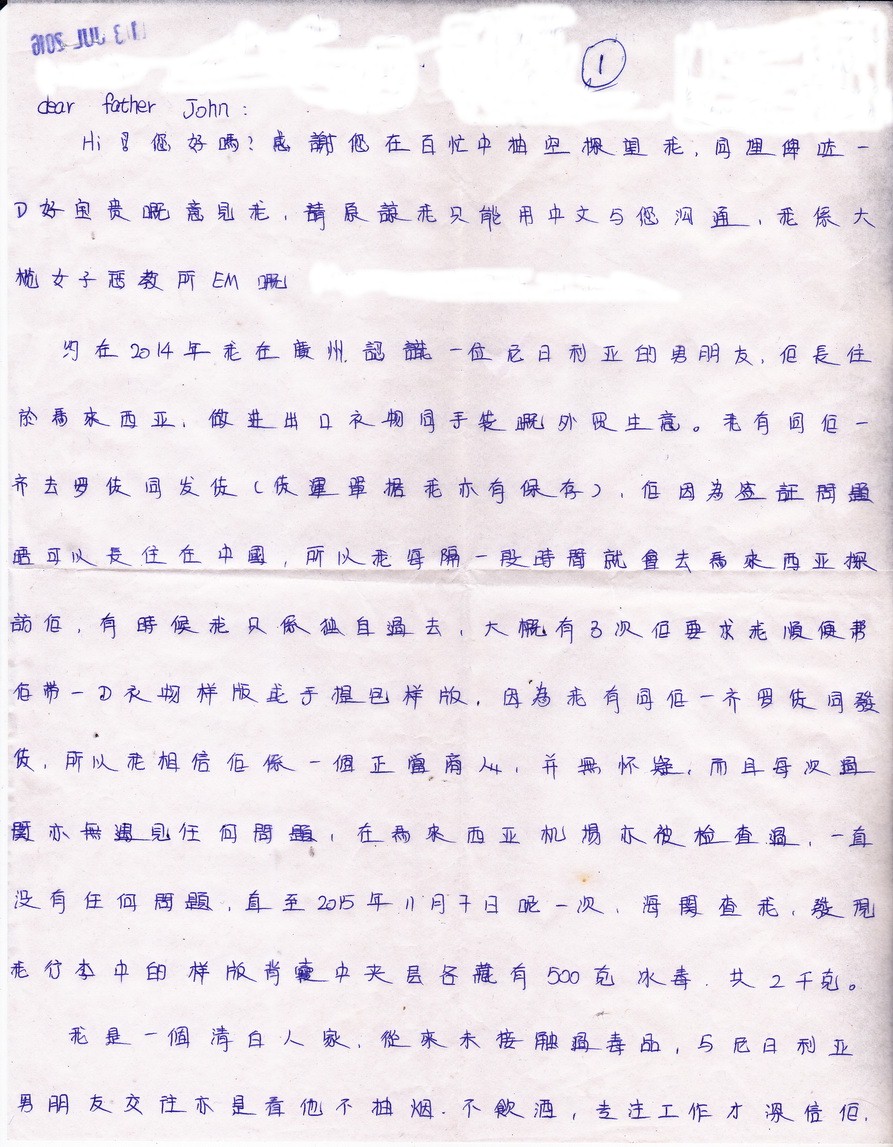 13 JUL 2016
1
dear father John :
Hi！您好嗎？感謝您在百忙中抽空探望我，同埋俾咗一
D好宝贵嘅意見我，請原諒我只能用中文与您沟通，我係大
欖女子惩教所EM嘅
約在2014年我在廣州認識一位尼日利亚的男朋友，佢長住
於馬來西亚，做进出口衣物同手袋嘅外贸生意。我有同佢一
齐去罗货同发货（货運單据我亦有保存），但因為签証問題
唔可以長住在中國，所以我每隔一段時間就會去馬來西亚探
訪佢，有時候我只係独自過去，大概有3次佢要求我順便帮
佢带一D衣物样版或手提包样版，因為我有同佢一齐罗货同發
货，所以我相信佢係一個正當商人，并無怀疑，而且每次過
関亦無遇見任何問題，在馬來西亚机場亦被检查過，一直
没有任何問題，直至2015年11月7日呢一次，海関查我，發現
我行李中的样版背囊中夹层各藏有500克冰毒．共2千克。
我是一個清白人家，從來未接触過毒品，与尼日利亚
男朋友交往亦是看他不抽烟．不飲酒，专注工作才深信佢．